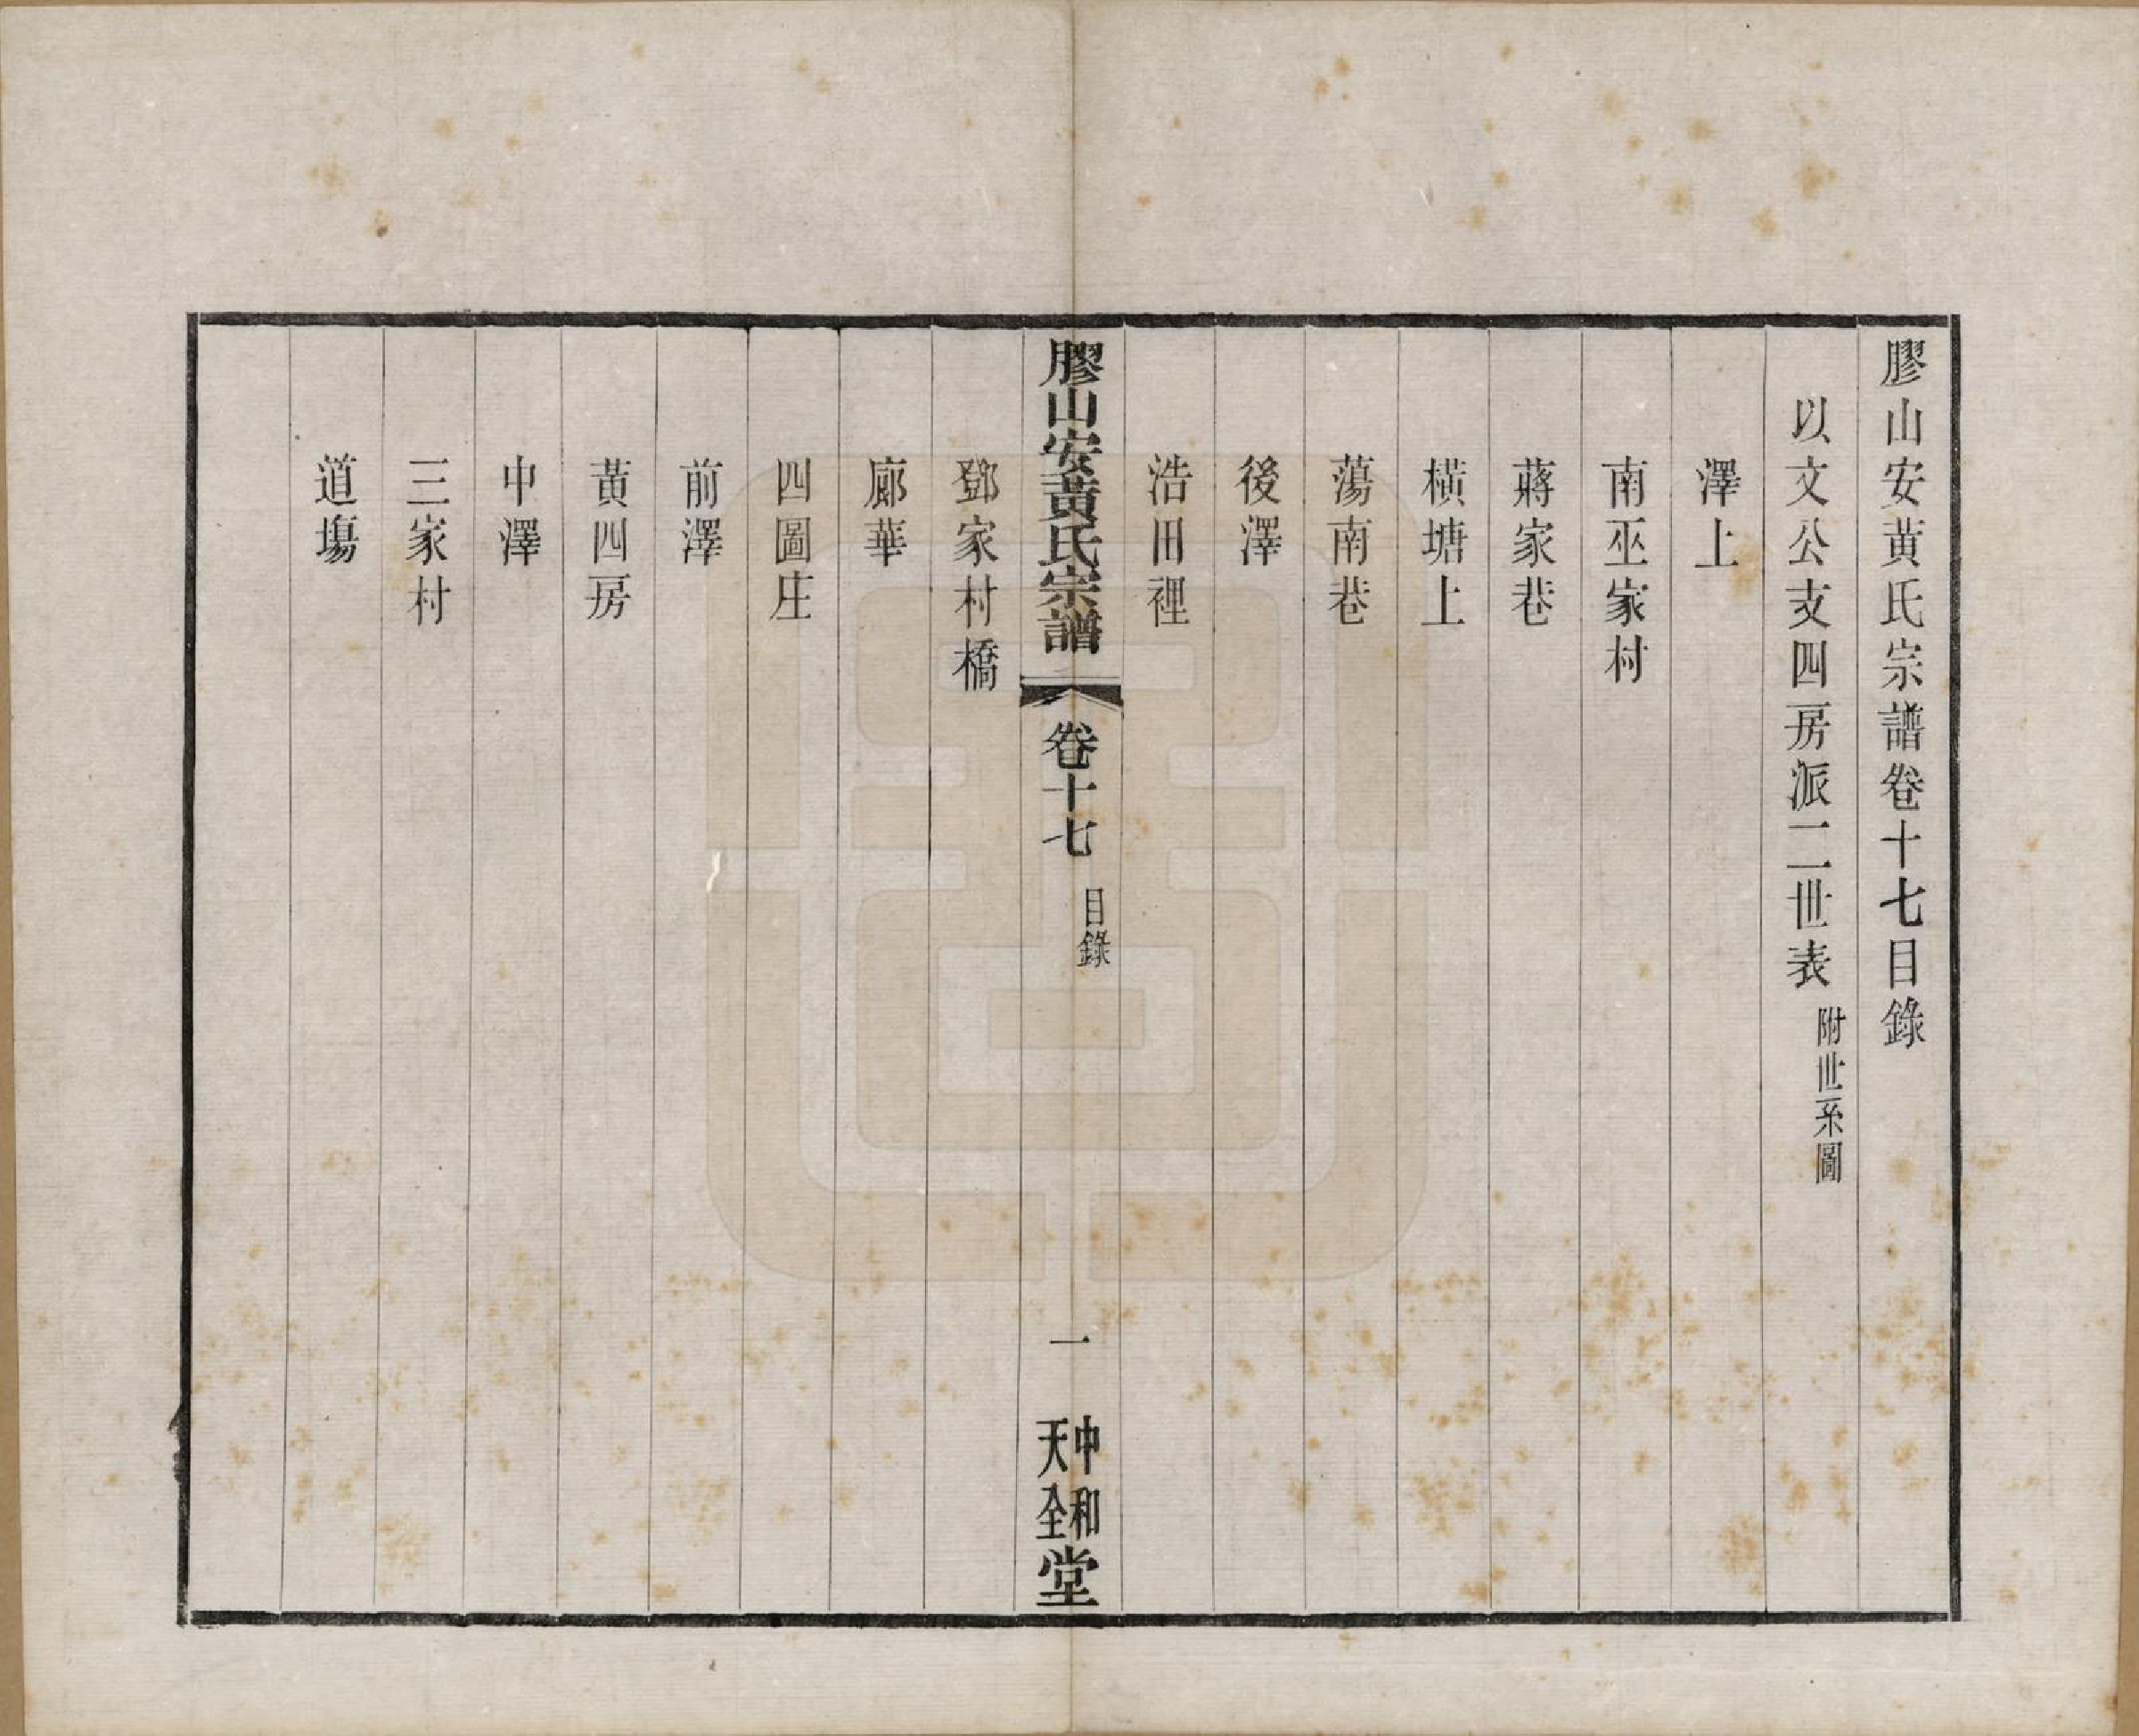 膠山安黄氏宗譜卷十七目錄
以文公支四房派二世表 附世系圖
澤上
南巫家村
蔣家巷
橫塘上
蕩南巷
後澤
浩田裡
膠山安黄氏宗譜 卷十七 目錄 一 中和天全堂
鄧家村橋
廊華
四圖庄
前澤
黃四房
中澤
三家村
道塲